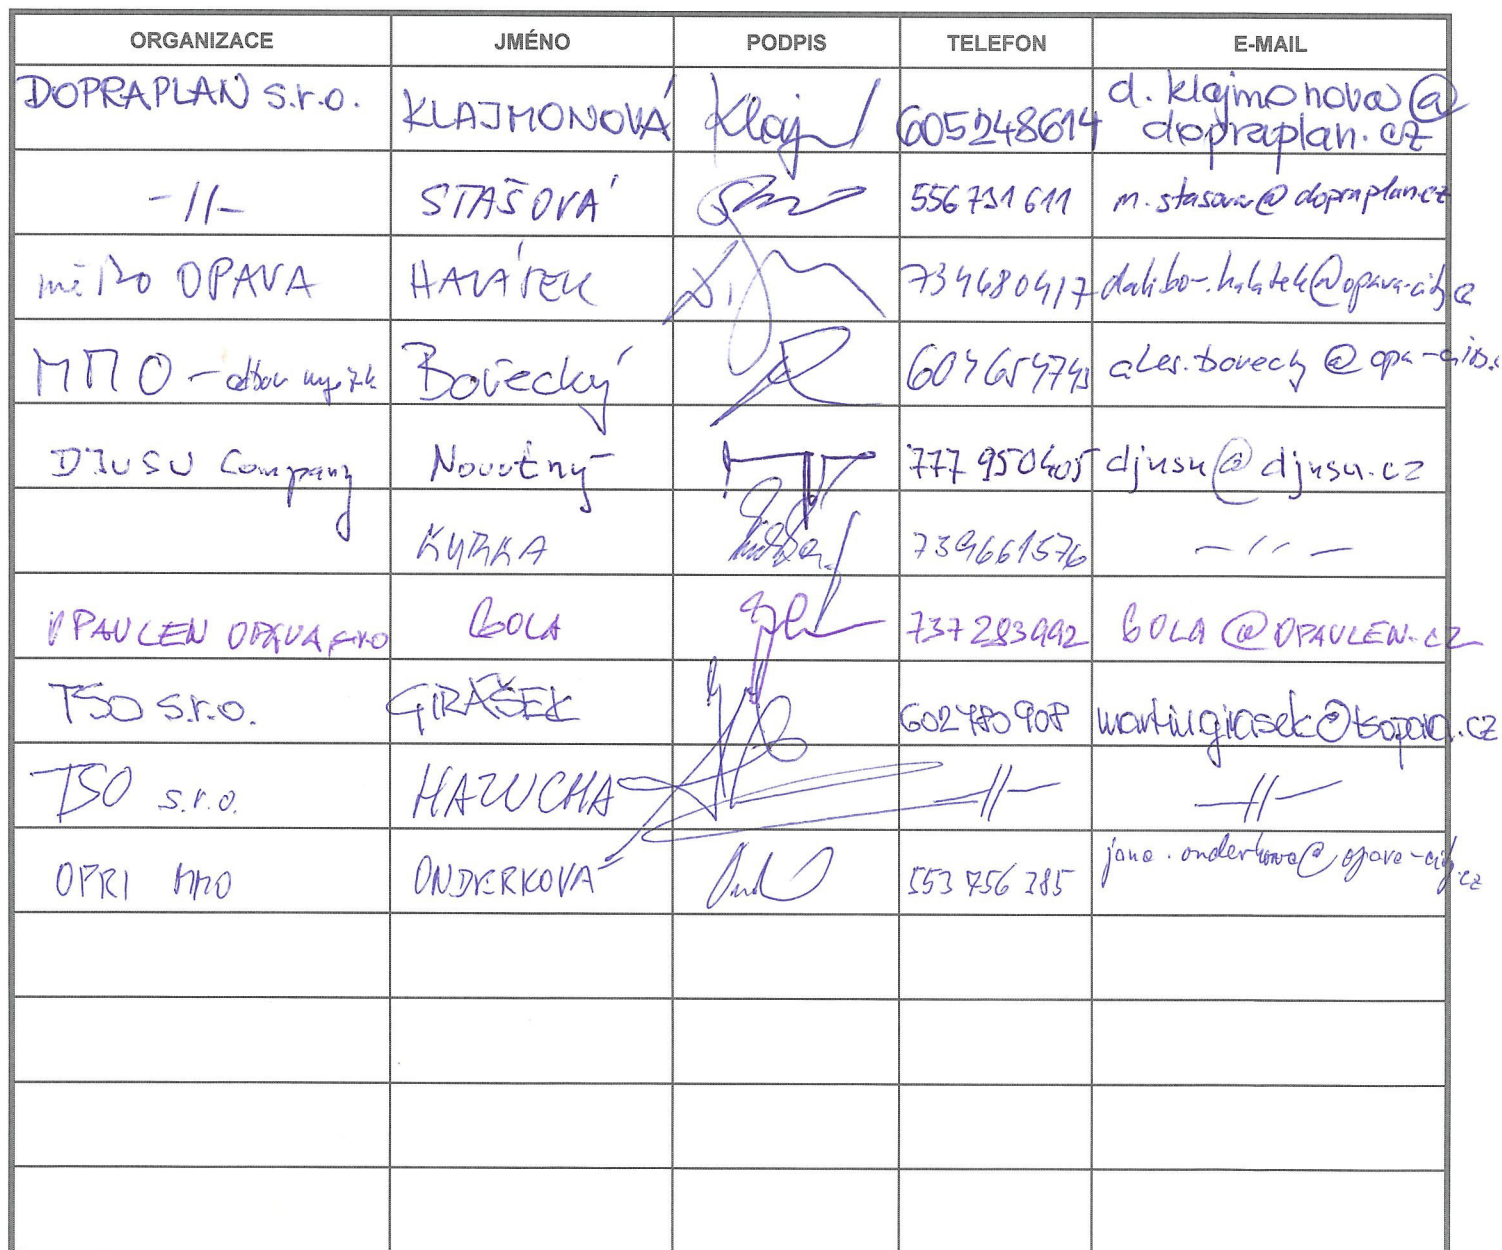 ORGANIZACE JMÉNO PODPIS TELEFON E-MAIL
DOPRAPLAN s.r.o. KLAJMONOVÁ Klaj 605248614 d.klajmonova@
dopraplan.cz
-//- STAŠOVÁ 556731611 m.stasova@dopraplan.cz
OPAVA HALÁTEK 734680417 dalibor.halatek@opava-city.cz
MMO - odbor Bořecký ales.borecky@
DJUSU Company Novotný 777 950405 djusu@djusu.cz
KYRKA 739661576 -//-
OPAVLEN OPAVA s.r.o BOLA 737283992 BOLA@OPAVLEN.CZ
TSO s.r.o. GIRÁŠEK 602780908 martin.girasek@tsopava.cz
TSO s.r.o. HAZUCHA -//- -//-
OPRI MMO ONDERKOVÁ 553 756 385 jana.onderkova@opava-city.cz